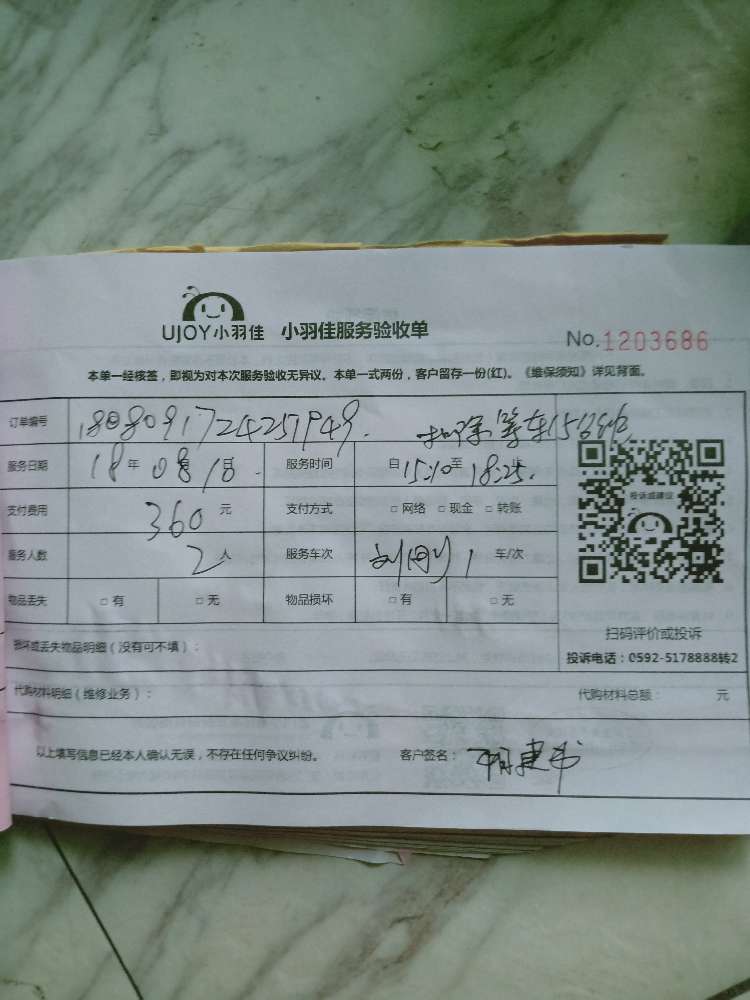 UJOY小羽佳 小羽佳服务验收单 No.1203686
本单一经核签，即视为对本次服务验收无异议。本单一式两份，客户留存一份(红)。《维保须知》详见背面。
订单编号 1808091724251949. 扣除等车15分钟
服务日期 18年08月18日. 服务时间 自15:10至18:25止
支付费用 360元 支付方式 □网络 □现金 □转账
投诉或建议
服务人数 2人 服务车次 刘刚1车/次
物品丢失 □有 □无 物品损坏 □有 □无
扫码评价或投诉
损坏或丢失物品明细（没有可不填）：
投诉电话：0592-5178888转2
代购材料明细（维修业务）： 代购材料总额： 元
以上填写信息已经本人确认无误，不存在任何争议纠纷。 客户签名：